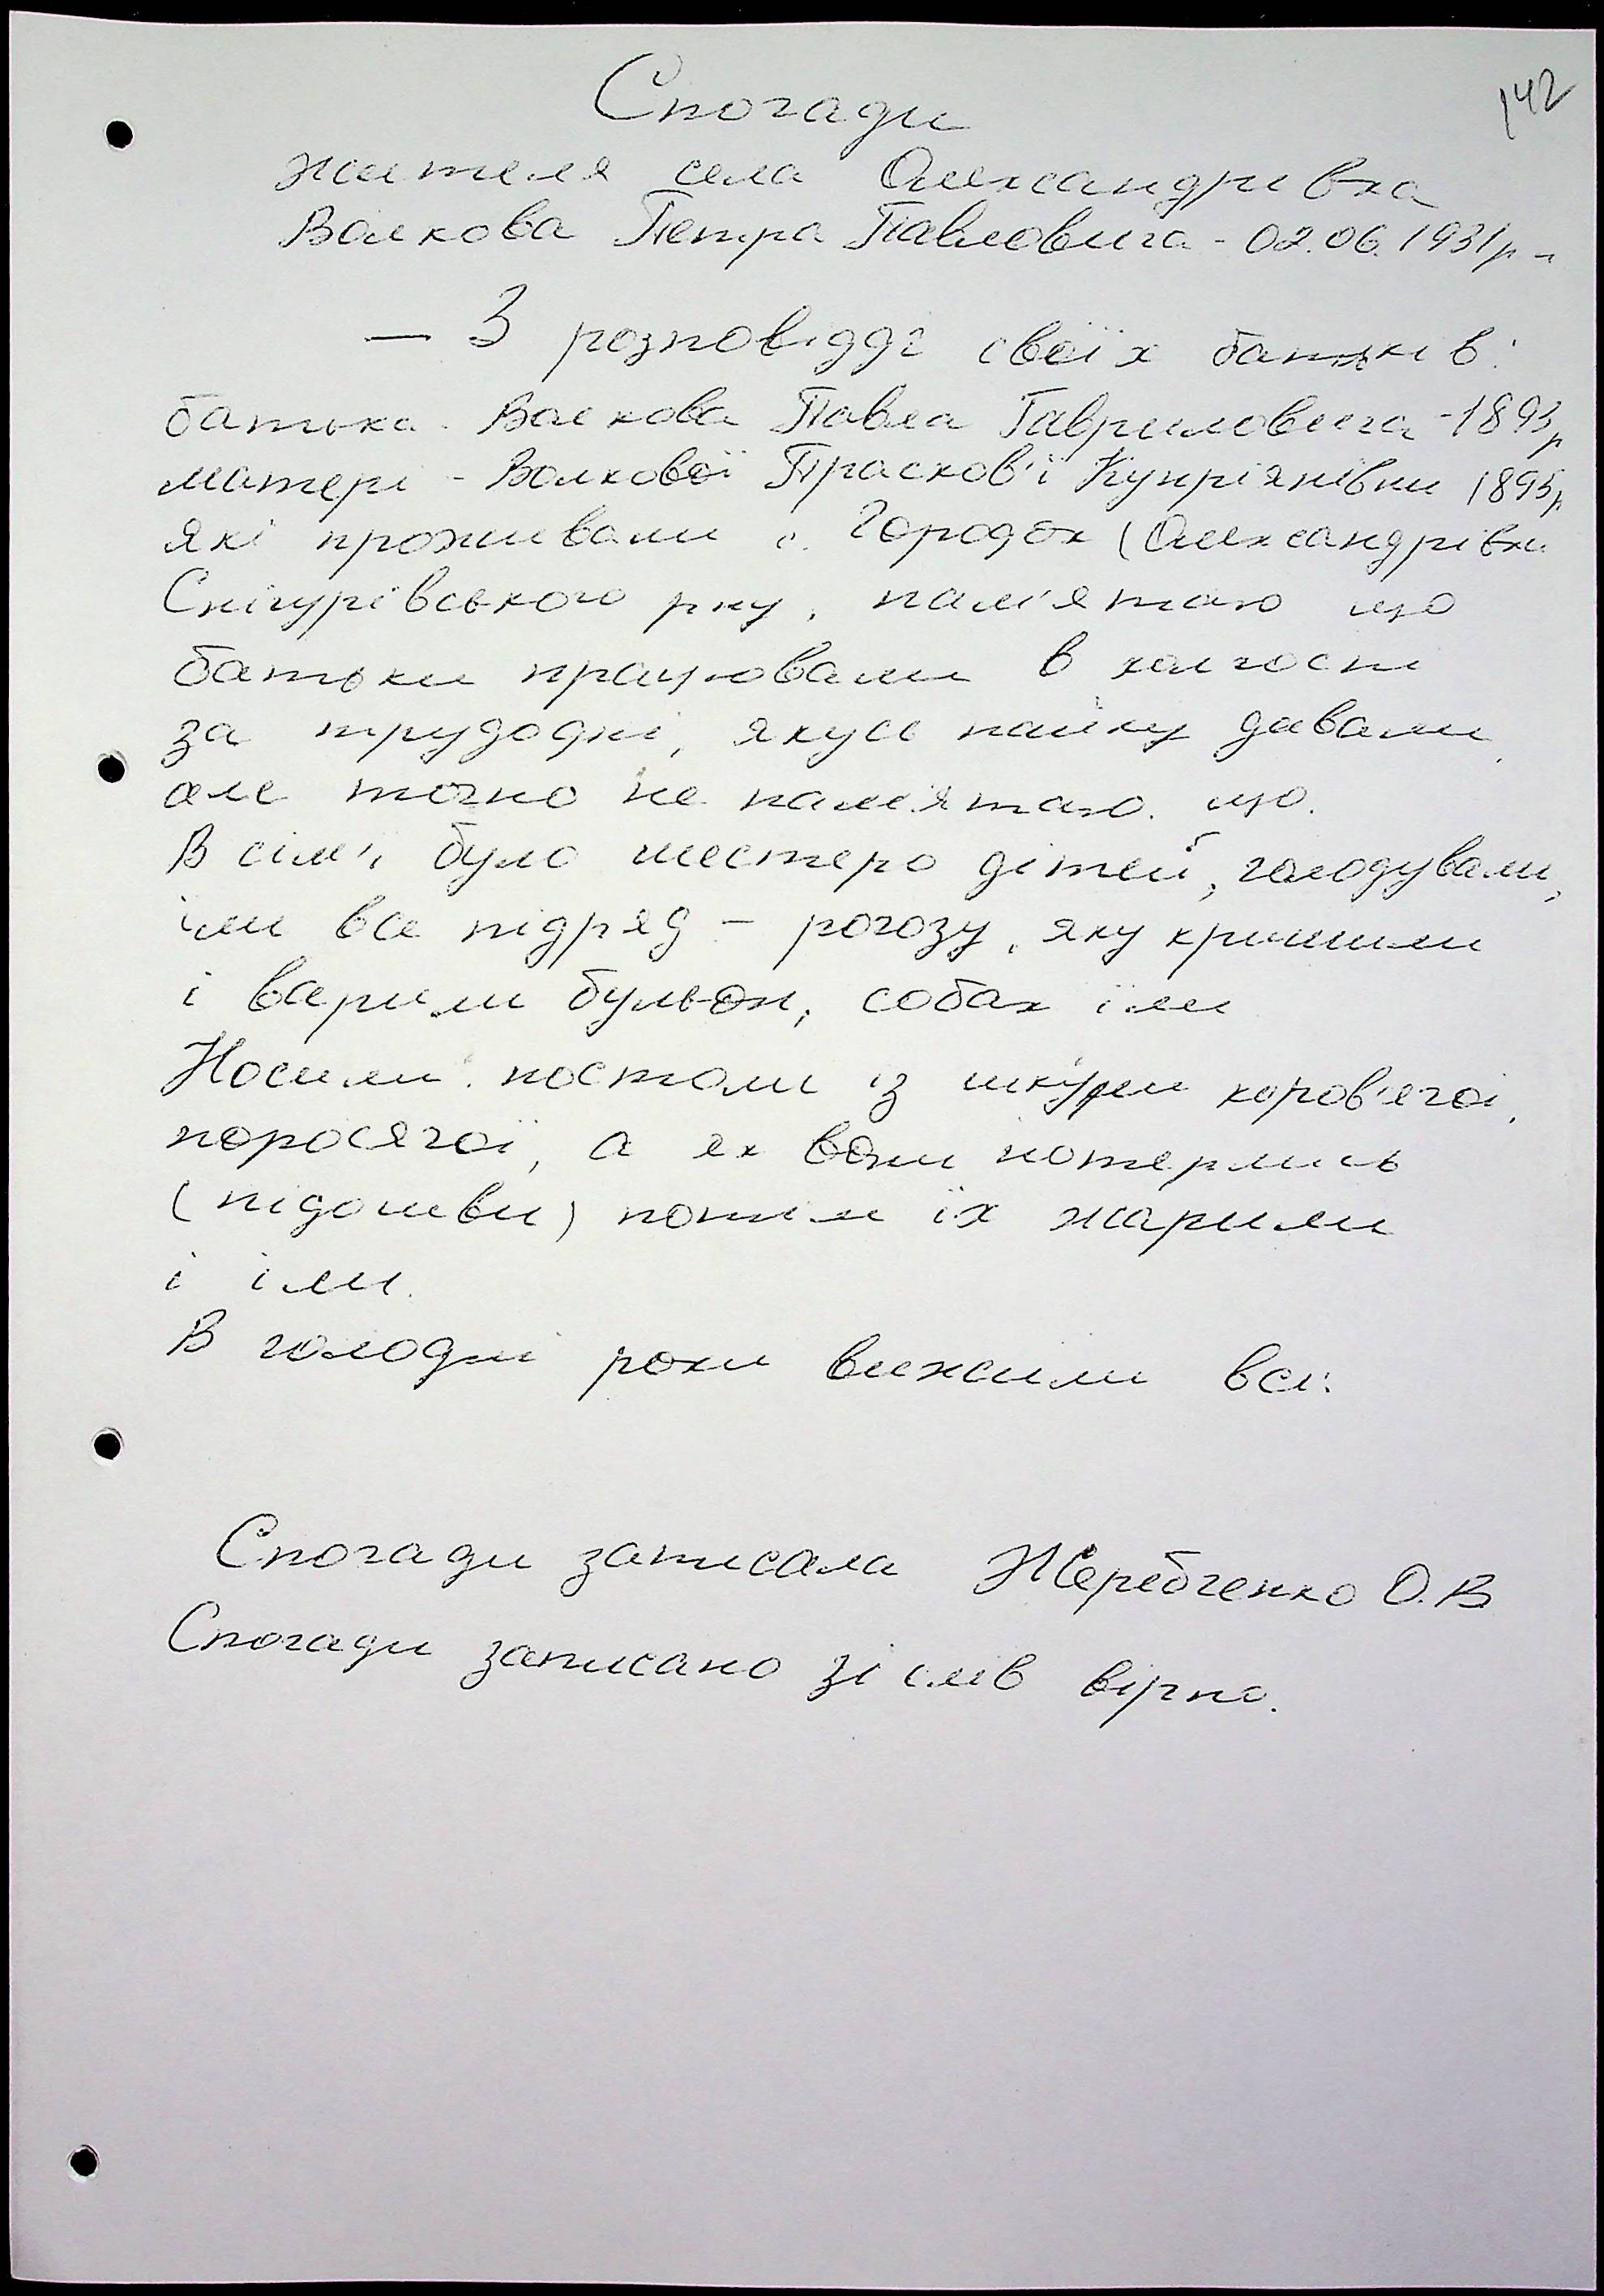 142
Спогади
жителя села Олександрівка
Волкова Петра Павловича - 02.06.1931р -
— З розповіддї своїх батьків:
батька - Волкова Павла Гавриловича - 1893р
матері - Волкової Прасков'ї Купріянівни 1895р
які проживали с. Городок (Олександрівка
Снігурівського р-ну, пам'ятаю що
батьки працювали в колгоспі
за трудодні, якусь пайку давали,
але точно не пам'ятаю що.
В сім'ї було шестеро дітей, голодували,
їли все підряд - рогозу, яку кришили
і варили бульон, собак їли
Носили постоли із шкури коров'ячої,
поросячої, а як вони потерлись
(підошви) потим їх жарили
і їли.
В голодні роки вижили всі.
Спогади записала Жеребченко О.В
Спогади записано зі слів вірно.